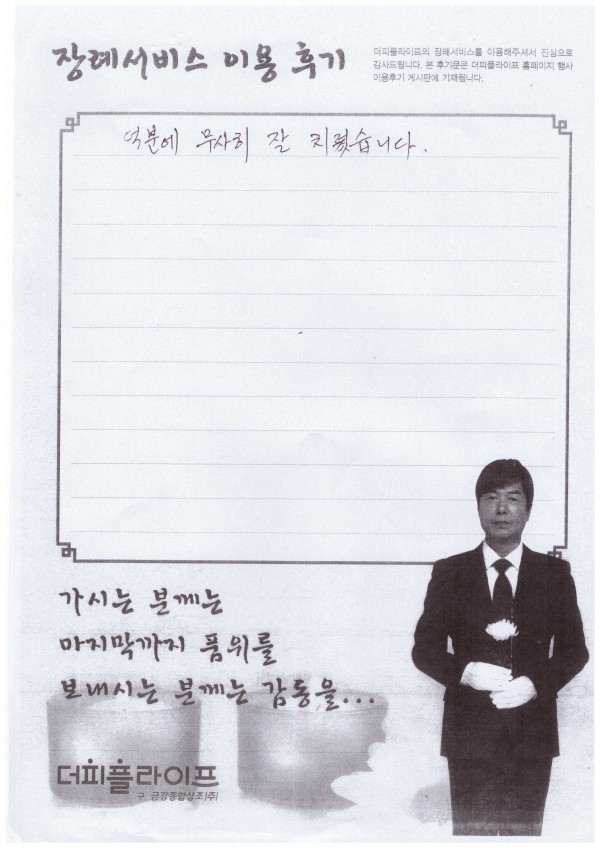 장례서비스 이용 후기
더피플라이프의 장례서비스를 이용해주셔서 진심으로
감사드립니다. 본 후기문은 더피플라이프 홈페이지 행사
이용후기 게시판에 기재됩니다.
덕분에 무사히 잘 치렀습니다.
가시는 분께는
마지막까지 품위를
보내시는 분께는 감동을...
더피플라이프
구. 금강종합상조(주)